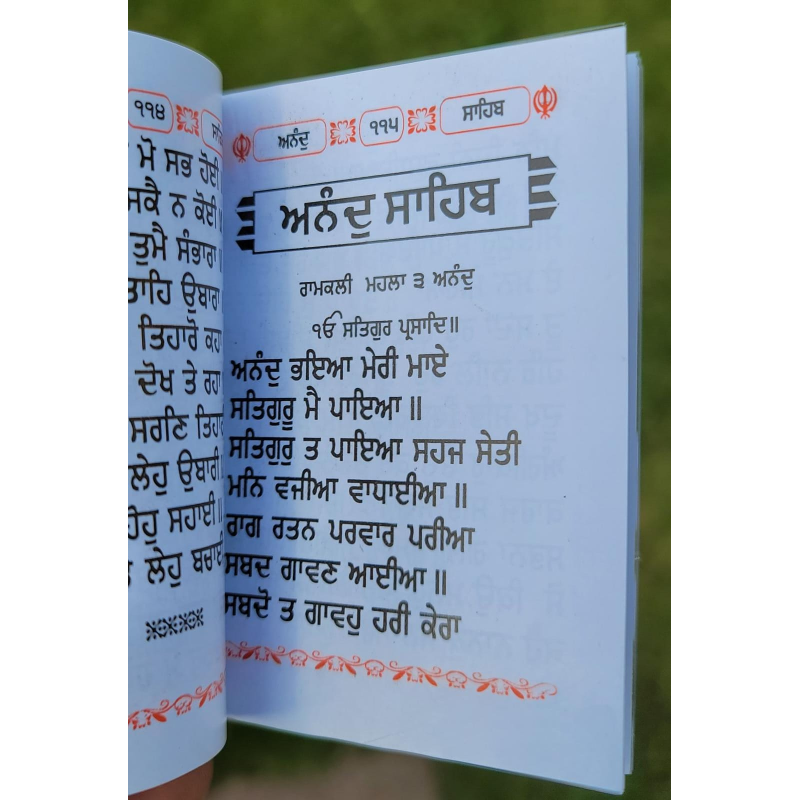 ੧੧੪
ਮੋ ਸਭ ਹੋਈ
ਸਕੈ ਨ ਕੋਈ
ਤੁਮੈ ਸੰਭਾਰਾ॥
ਤਾਹਿ ਉਬਾਰਾ
ਤਿਹਾਰੋ ਕਹਾ
ਦੋਖ ਤੇ ਰਹਾ
ਸਰਣਿ
ਲੇਹੁ ਉਬਾਰੀ
ਹੋਹੁ ਸਹਾਈ॥
ਲੇਹੁ ਬਚਾਈ
ਅਨੰਦੁ ੧੧੫ ਸਾਹਿਬ
ਅਨੰਦੁ ਸਾਹਿਬ
ਰਾਮਕਲੀ ਮਹਲਾ ੩ ਅਨੰਦੁ
ੴ ਸਤਿਗੁਰ ਪ੍ਰਸਾਦਿ॥
ਅਨੰਦੁ ਭਇਆ ਮੇਰੀ ਮਾਏ
ਸਤਿਗੁਰੂ ਮੈ ਪਾਇਆ॥
ਸਤਿਗੁਰੁ ਤ ਪਾਇਆ ਸਹਜ ਸੇਤੀ
ਮਨਿ ਵਜੀਆ ਵਾਧਾਈਆ॥
ਰਾਗ ਰਤਨ ਪਰਵਾਰ ਪਰੀਆ
ਸਬਦ ਗਾਵਣ ਆਈਆ॥
ਸਬਦੋ ਤ ਗਾਵਹੁ ਹਰੀ ਕੇਰਾ